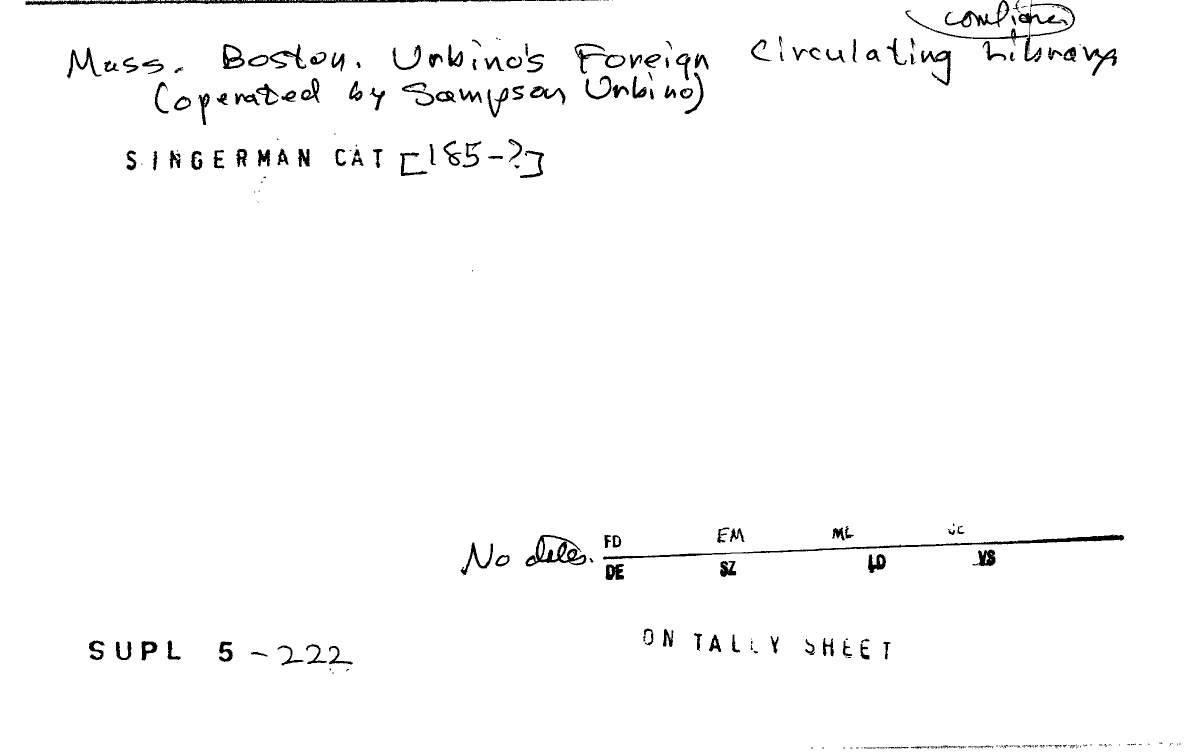 Mass. Boston. Urbino's Foreign Circulating Library
(operated by Sampson Urbino)
SINGERMAN CAT [185-?]
No dates.
FD EM ML
DE SZ LD VS
SUPL 5 - 222
ON TALLY SHEET